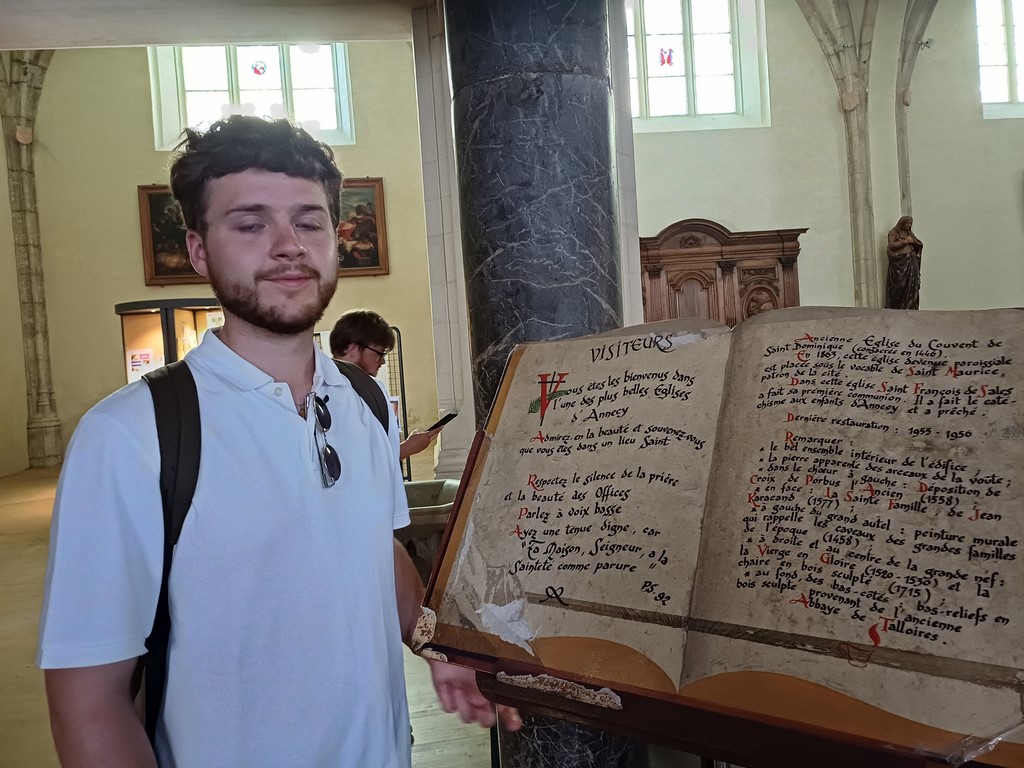 VISITEURS
Vous êtes les bienvenus dans
l'une des plus belles Églises
d'Annecy
Admirez-en la beauté et souvenez-vous
que vous êtes dans un lieu Saint
Respectez le silence de la prière
et la beauté des Offices
Parlez à voix basse
Ayez une tenue digne, car
"Ta Maison, Seigneur, a la
Sainteté comme parure"
P.S. 92
Ancienne Église du Couvent de
Saint Dominique (consacrée en 1446).
En 1803, cette église devenue paroissiale
est placée sous le vocable de Saint Maurice,
patron de la cité
Dans cette église Saint François de Sales
a fait sa première communion. Il a fait le caté-
chisme aux enfants d'Annecy et a prêché.
Dernière restauration : 1955 - 1956
Remarquer :
* le bel ensemble intérieur de l'édifice ;
* la pierre apparente des arceaux de la voûte ;
* dans le chœur à gauche : Déposition de
Croix de Porbus l'Ancien (1558) ;
* en face : La Sainte Famille, de Jean
Karacand (1577) ;
* à gauche du grand autel : peinture murale
qui rappelle les caveaux des grandes familles
de l'époque (1458)
* à droite et au centre de la grande nef :
la Vierge en Gloire (1520-1530) et la
chaire en bois sculpté (1715) ;
* au fond, des bas-côtés : bas-reliefs en
bois sculpté provenant de l'ancienne
Abbaye de Talloires.